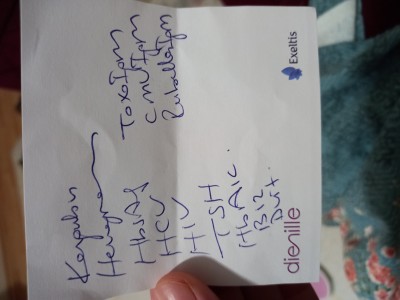 Hemogram
HbsAg
HCV
HIV
TSH
HbA1C.
B12
D vit.
Toxo IgM
CMV IgM
Rubella IgM
dienille
Exeltis